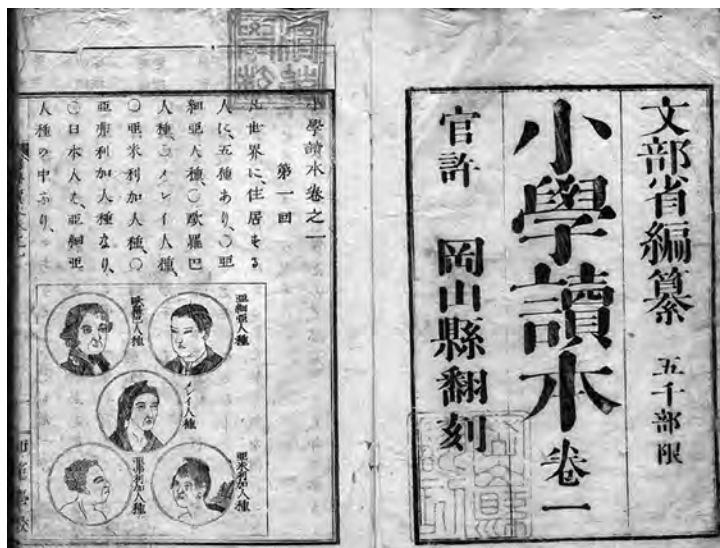 文部省編纂 五千部限
小學讀本 卷一
官許 岡山縣翻刻
小學讀本卷之一
第一回
凡世界に、住居する
人に、五種あり、〇亞
細亞人種、〇歐羅巴
人種、〇メレイ人種、
〇亞米利加人種、〇
亞弗利加人種なり、
〇日本人も、亞細亞
人種の中なり、
亞細亞人種
歐羅巴人種
メレイ人種
亞米利加人種
亞弗利加人種